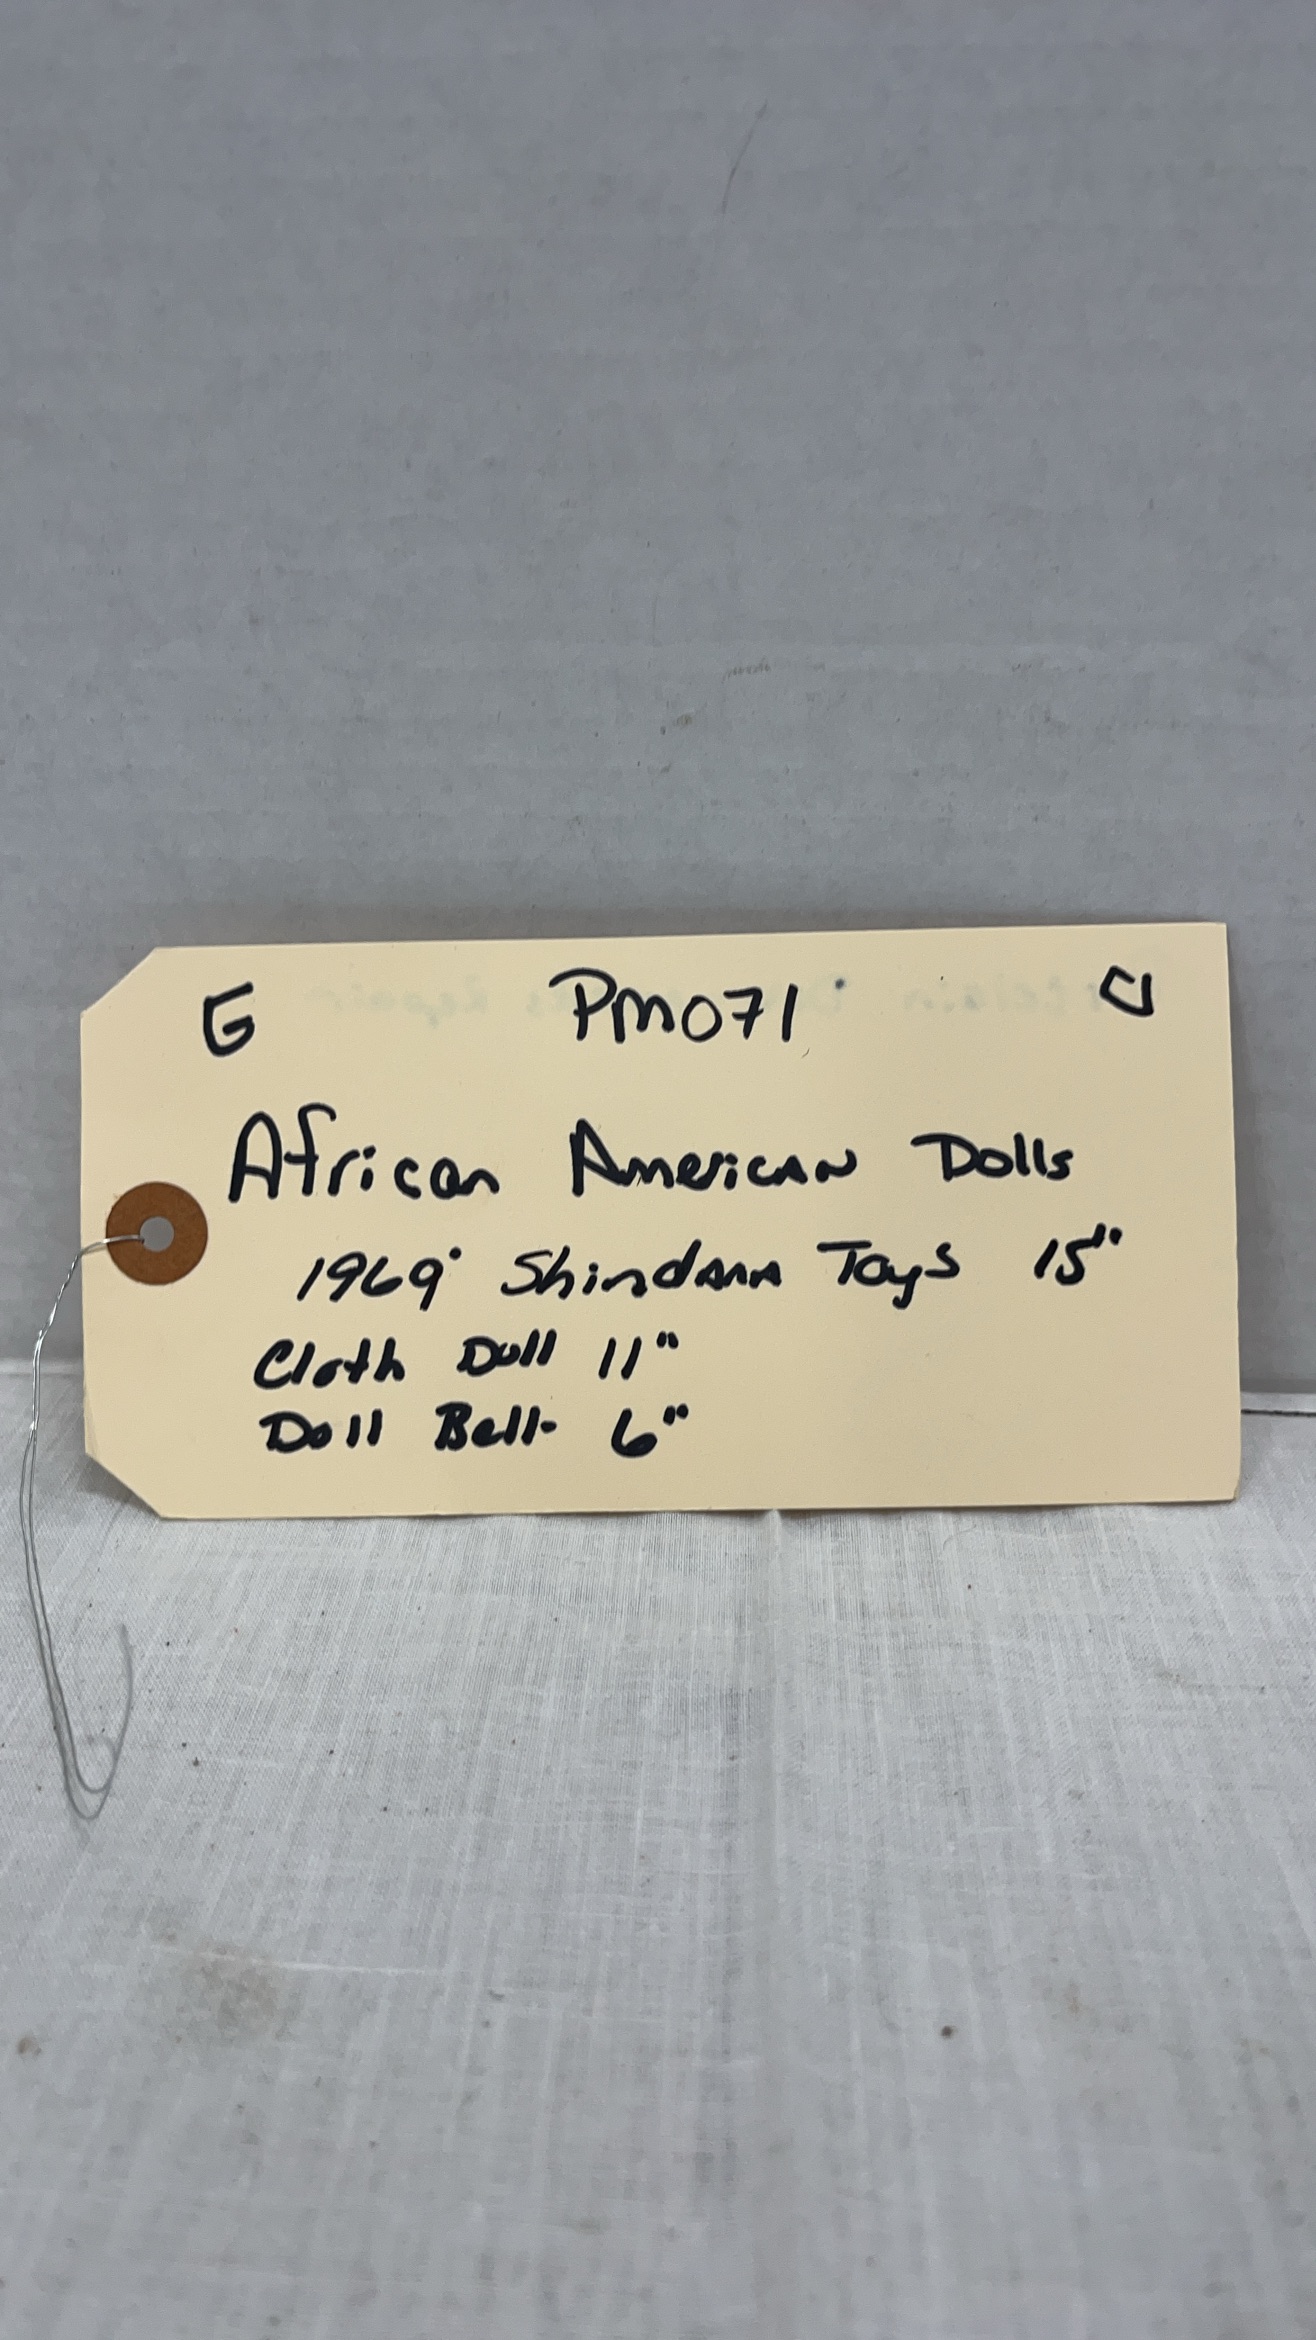 G PM071
African American Dolls
1969 Shindana Toys 15"
Cloth Doll 11"
Doll Bell- 6"